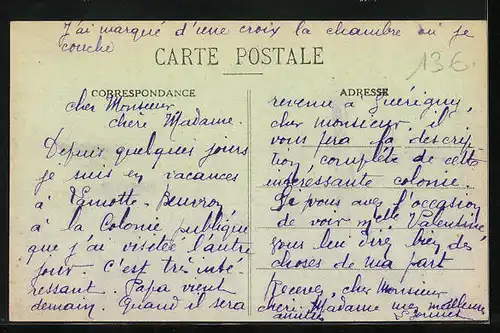 J'ai marqué d'une croix la chambre où je
couche
CARTE POSTALE
13€
CORRESPONDANCE
cher Monsieur
chère Madame.
Depuis quelques jours
je suis en vacances
à Lamotte-Beuvron
à la Colonie publique
que j'ai visitée l'autre
jour. C'est très inté-
ressant. Papa vient
demain. Quand il sera
ADRESSE
revenu à Guérigny,
cher monsieur, il
vous fera la descrip-
tion complète de cette
intéressante colonie.
Si vous avez l'occasion
de voir Melle Valentine
vous leur direz bien des
choses de ma part
Recevez, cher Monsieur
chère Madame mes meilleures
amitiés